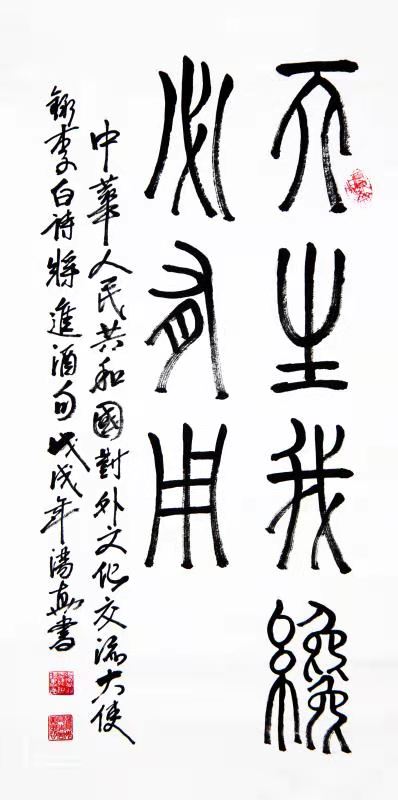 天生我纔
必有用
中華人民共和國對外文化交流大使
錄李白诗將進酒句戊戌年書